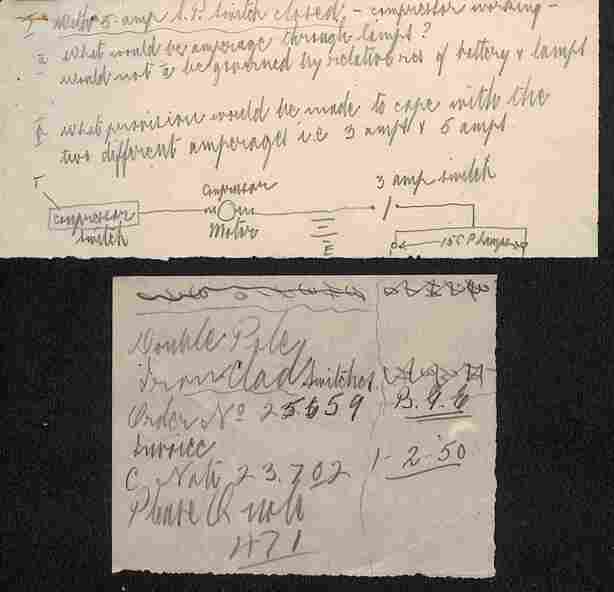 With 5 amp S.P. switch closed, - compressor working -
I what would be amperage through lamps?
would not I be governed by relative res of battery & lamps
what provision would be made to cope with the
two different amperages i.e 3 amps & 5 amps
3 amp switch
compressor
Motor
compressor
switch
E
15 C P lamps
Double Pole
Iron Clad switches
Order No 25559
Invoice
C. Note 23.702
1-2-50
Please Quote
471